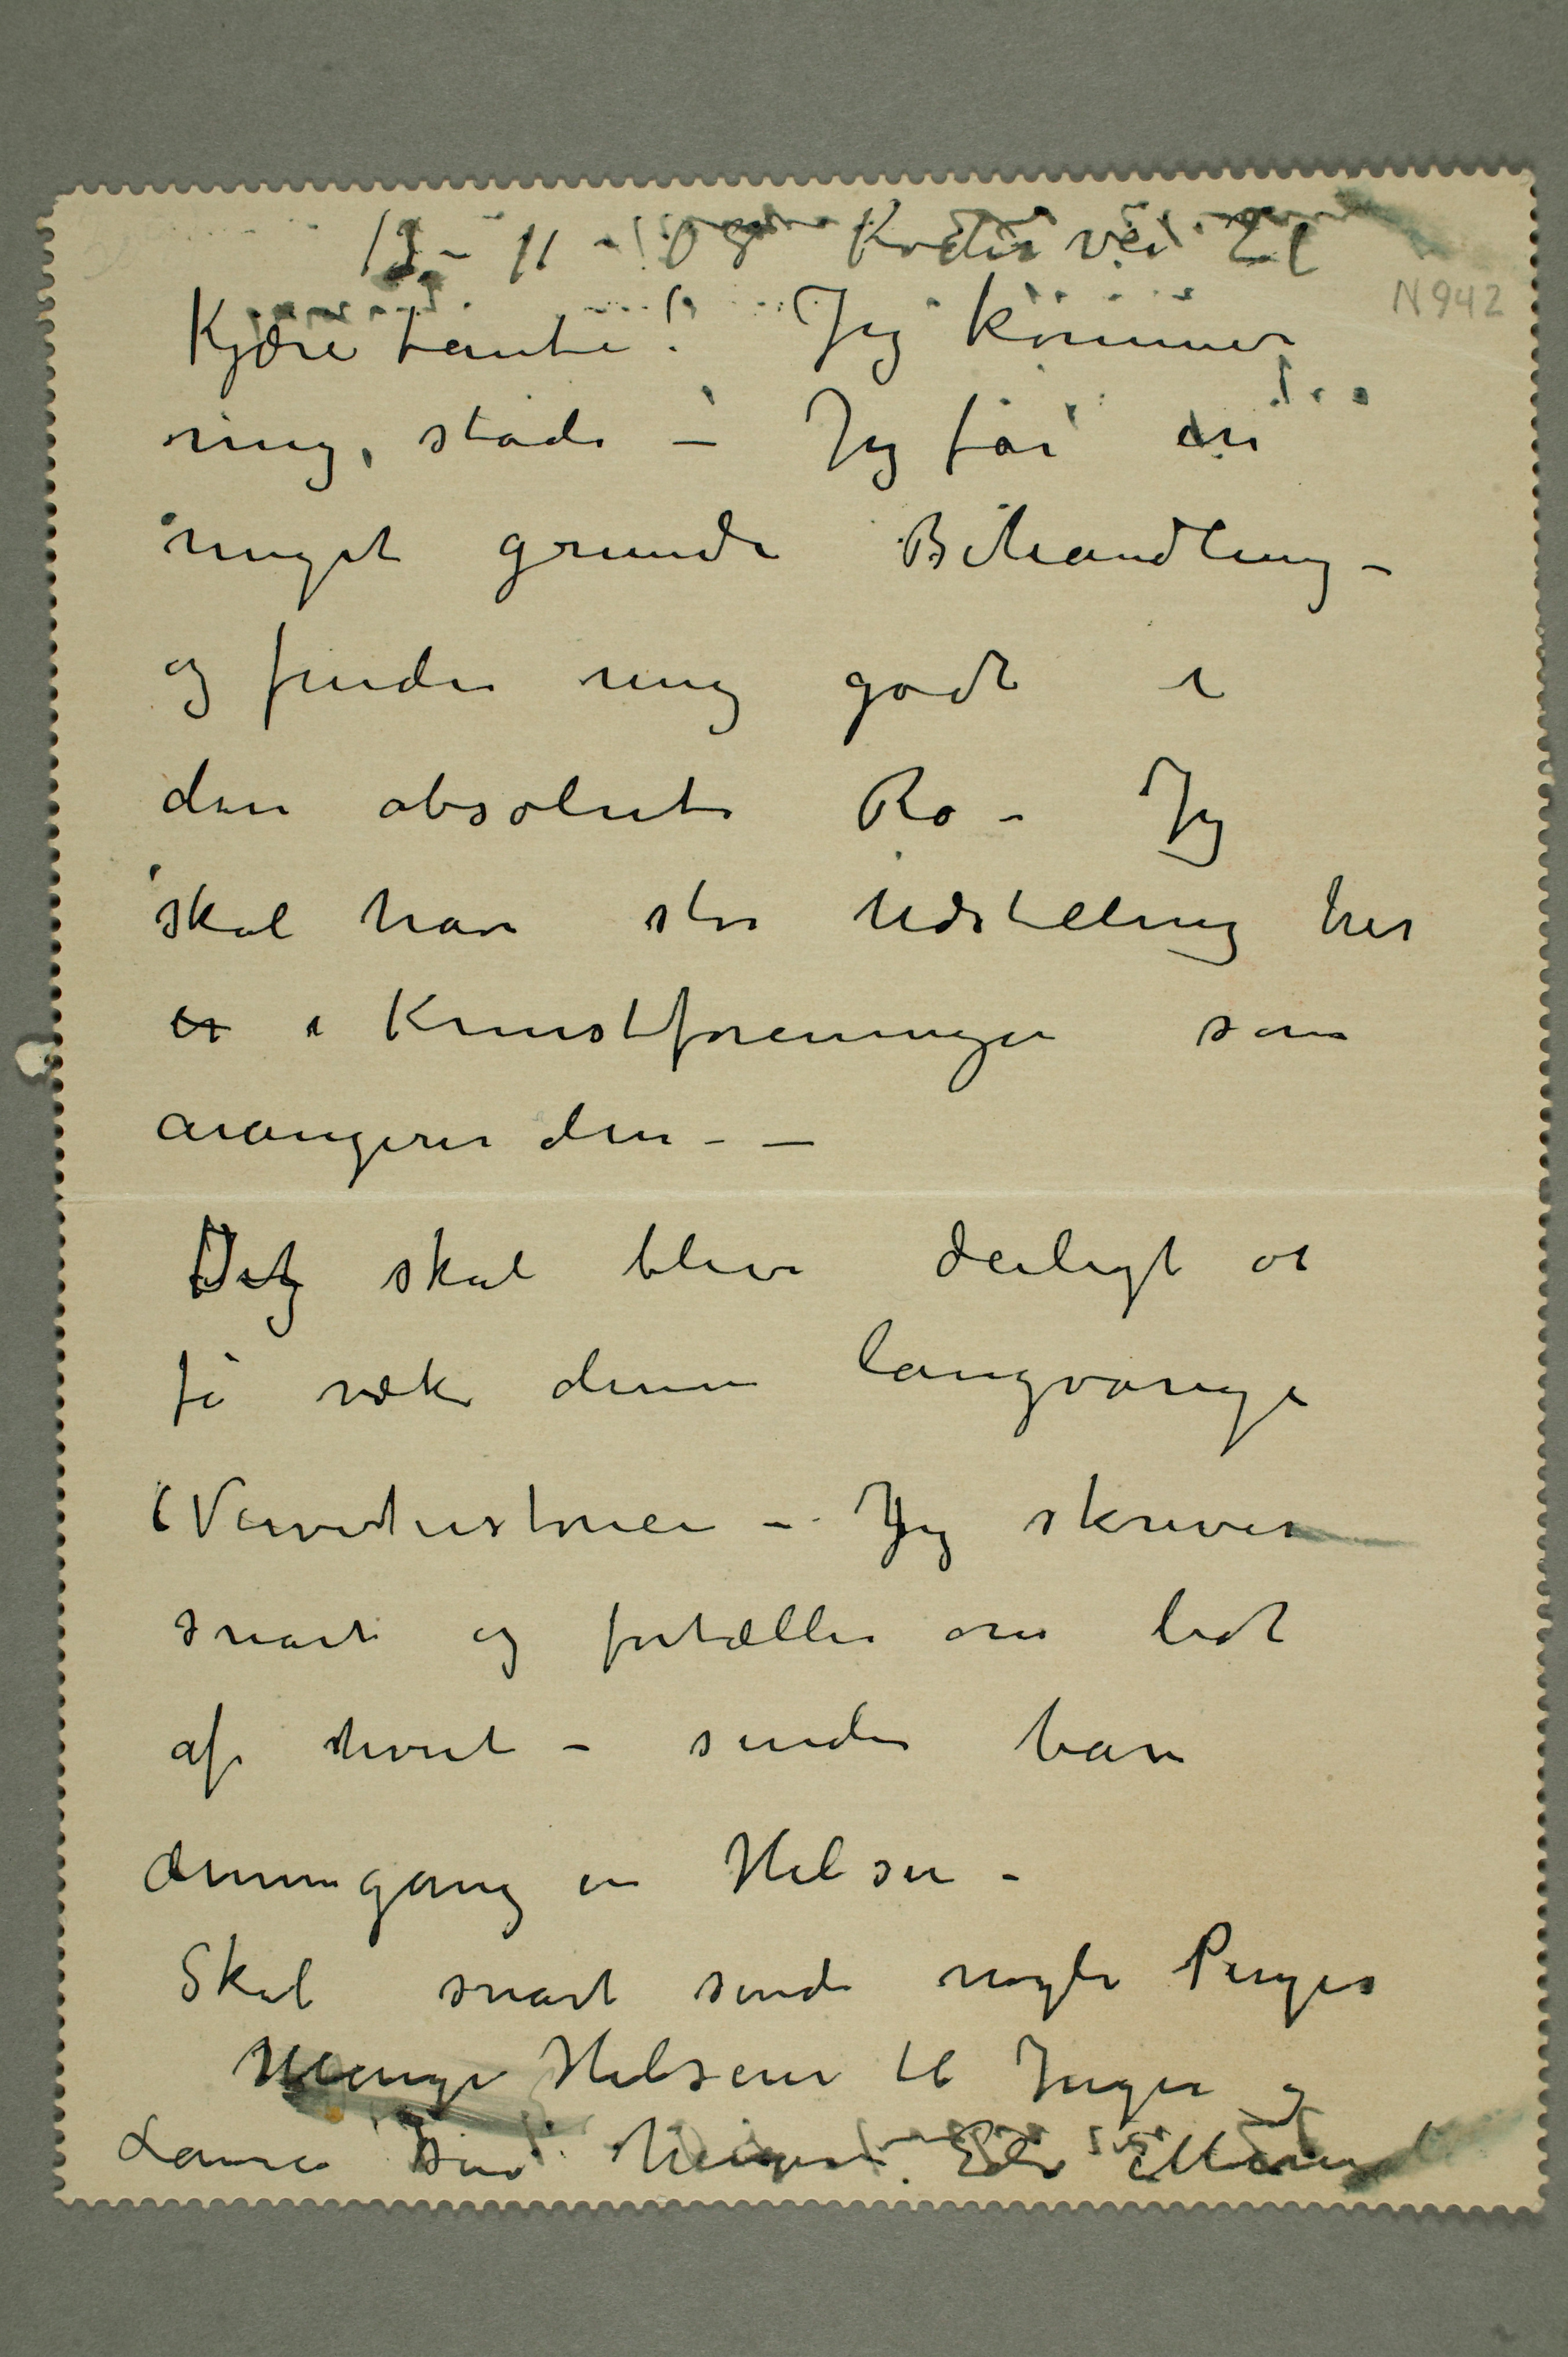 13 – 11 – 08 Kochsvei 21
N 942
Kjære tante! Jeg kommer
mig, stadi – Jeg får en
meget grundi Behandling –
og finder mig godt i
den absolute Ro – Jeg
skal have stor Udstilling her
er i Kunstforeningen som
arangerer den – –
Det skal blive deiligt at
få væk denne langvarige
Nervehistorien – Jeg skriver
snart og fortæller om lidt
af hvert – sender bare
dennegang en Hilsen –
Skal snart sende nogle Penge
Mange Hilsener til Inger og
Laura Din hengivne Edv Munch